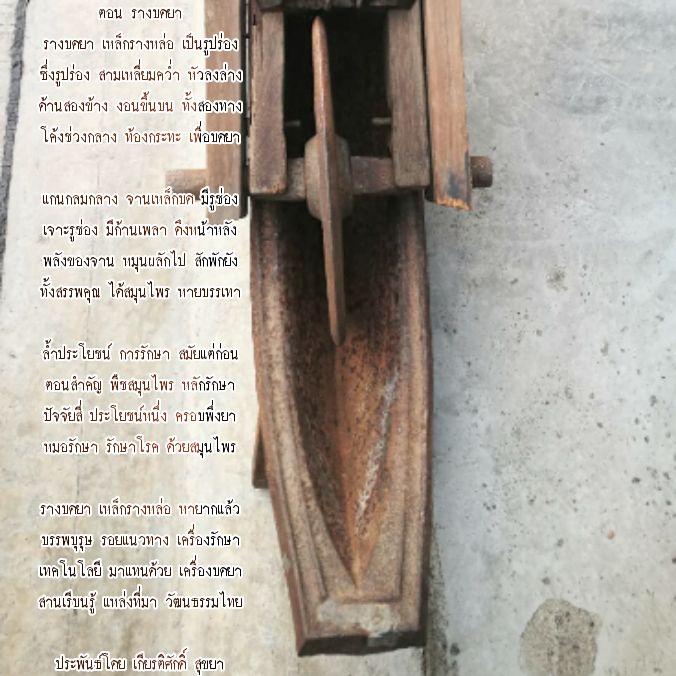 ตอน รางบดยา
รางบดยา เหล็กรางหล่อ เป็นรูปร่อง
ซึ่งรูปร่อง สามเหลี่ยมคว่ำ หัวลงล่าง
ด้านสองข้าง งอนขึ้นบน ทั้งสองทาง
โค้งช่วงกลาง ท้องกระทะ เพื่อบดยา
แกนกลมกลาง จานเหล็กบด มีรูช่อง
เจาะรูช่อง มีก้านเพลา ดึงหน้าหลัง
พลังของจาน หมุนผลักไป สักพักยัง
ทั้งสรรพคุณ ได้สมุนไพร หายบรรเทา
ล้ำประโยชน์ การรักษา สมัยแต่ก่อน
ตอนสำคัญ พืชสมุนไพร หลักรักษา
ปัจจัยสี่ ประโยชน์หนึ่ง ครอบพึ่งยา
หมอรักษา รักษาโรค ด้วยสมุนไพร
รางบดยา เหล็กรางหล่อ หายากแล้ว
บรรพบุรุษ รอยแนวทาง เครื่องรักษา
เทคโนโลยี มาแทนด้วย เครื่องบดยา
สานเรียนรู้ แหล่งที่มา วัฒนธรรมไทย
ประพันธ์โดย เกียรติศักดิ์ สุขยา